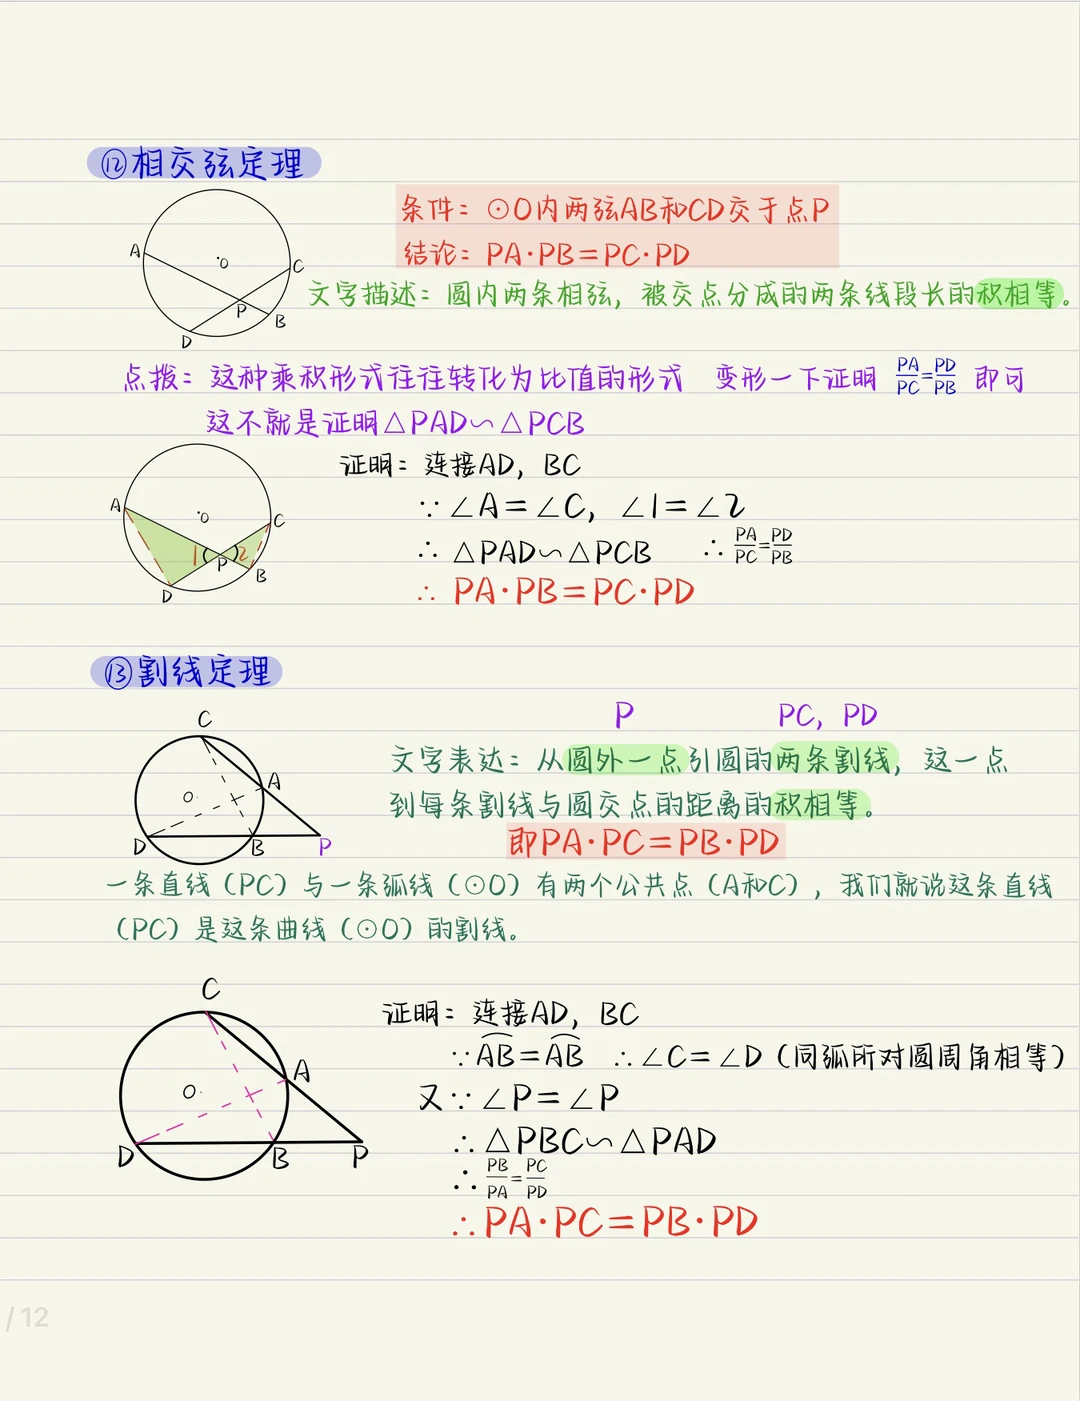 ⑫相交弦定理
条件：⊙O内两弦AB和CD交于点P
结论：PA·PB=PC·PD
A
O
C
P
B
D
文字描述：圆内两条相弦，被交点分成的两条线段长的积相等。
点拨：这种乘积形式往往转化为比值的形式 变形一下证明 PA/PC=PD/PB 即可
这不就是证明△PAD∽△PCB
证明：连接AD，BC
∵∠A=∠C，∠1=∠2
∴△PAD∽△PCB ∴PA/PC=PD/PB
∴PA·PB=PC·PD
A
O
C
1
P
2
B
D
⑬割线定理
C
A
O
D
B
P
P PC，PD
文字表达：从圆外一点引圆的两条割线，这一点
到每条割线与圆交点的距离的积相等。
即PA·PC=PB·PD
一条直线（PC）与一条弧线（⊙O）有两个公共点（A和C），我们就说这条直线
（PC）是这条曲线（⊙O）的割线。
C
A
O
D
B
P
证明：连接AD，BC
∵AB=AB ∴∠C=∠D（同弧所对圆周角相等）
又∵∠P=∠P
∴△PBC∽△PAD
∴PB/PA=PC/PD
∴PA·PC=PB·PD
/12